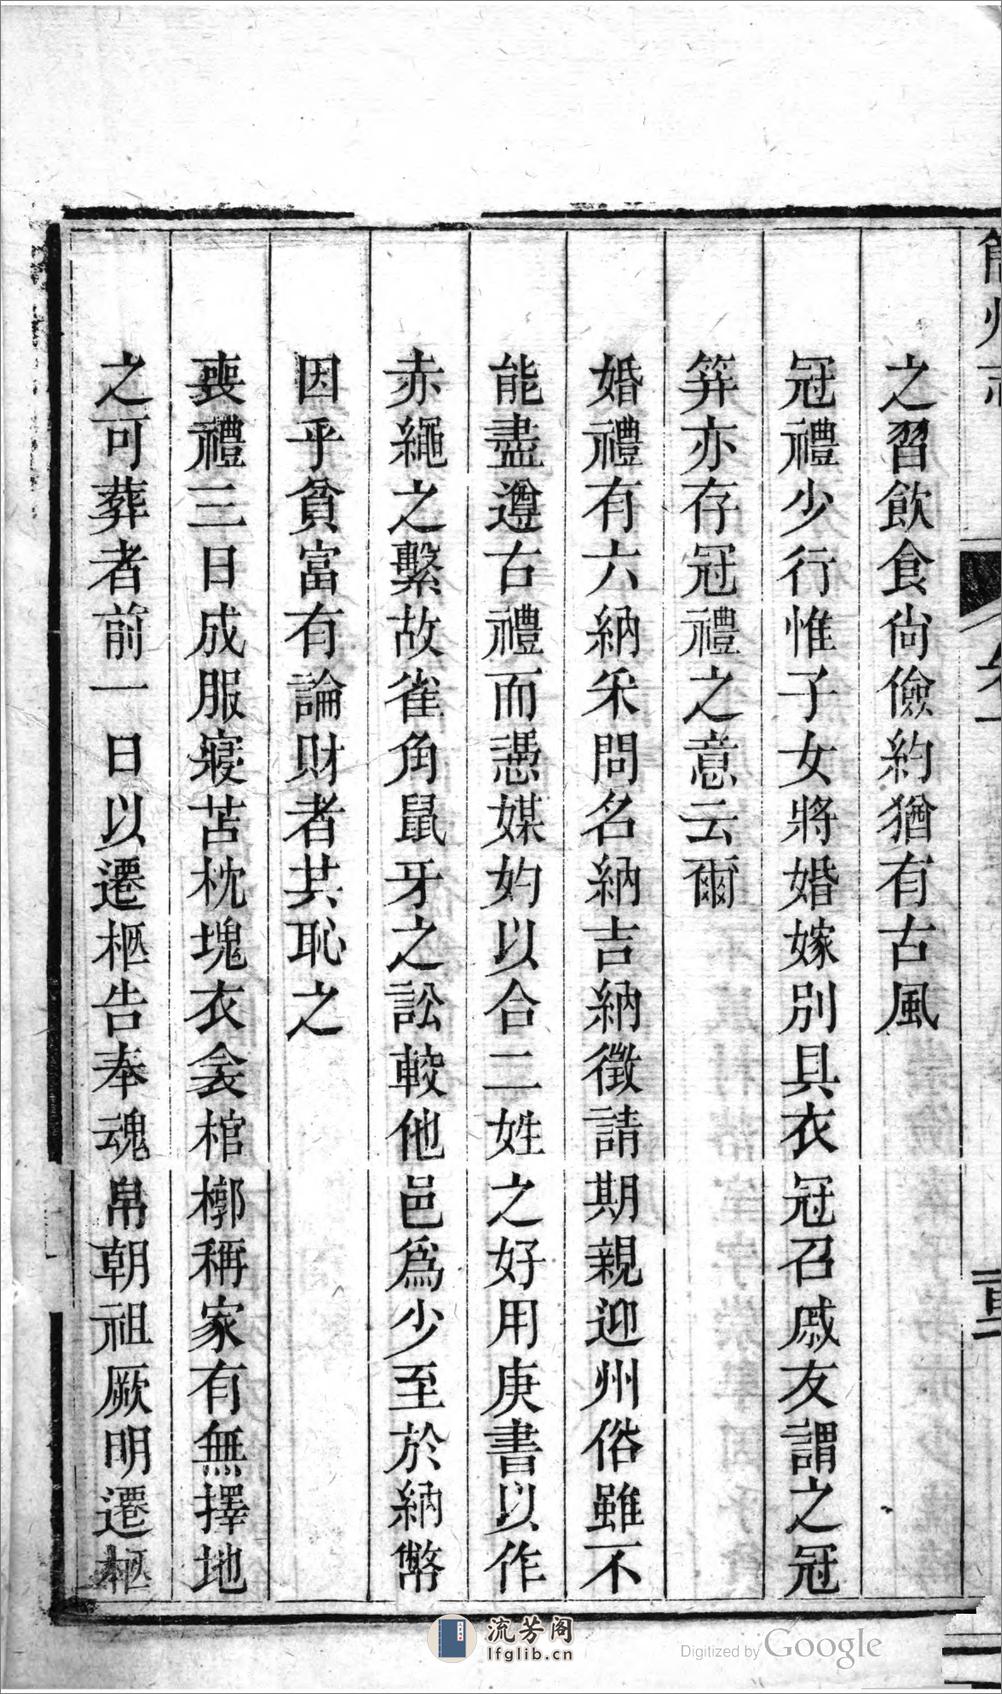 之習飲食尙儉約猶有古風
冠禮少行惟子女將婚嫁別具衣冠召戚友謂之冠
筓亦存冠禮之意云爾
婚禮有六納采問名納吉納徵請期親迎州俗雖不
能盡遵古禮而憑媒妁以合二姓之好用庚書以作
赤繩之繫故雀角鼠牙之訟較他邑爲少至於納幣
因乎貧富有論財者共恥之
喪禮三日成服寢苫枕塊衣衾棺槨稱家有無擇地
之可葬者前一日以遷柩告奉魂帛朝祖厥明遷柩
流芳阁
lfglib.cn
Digitized by Google